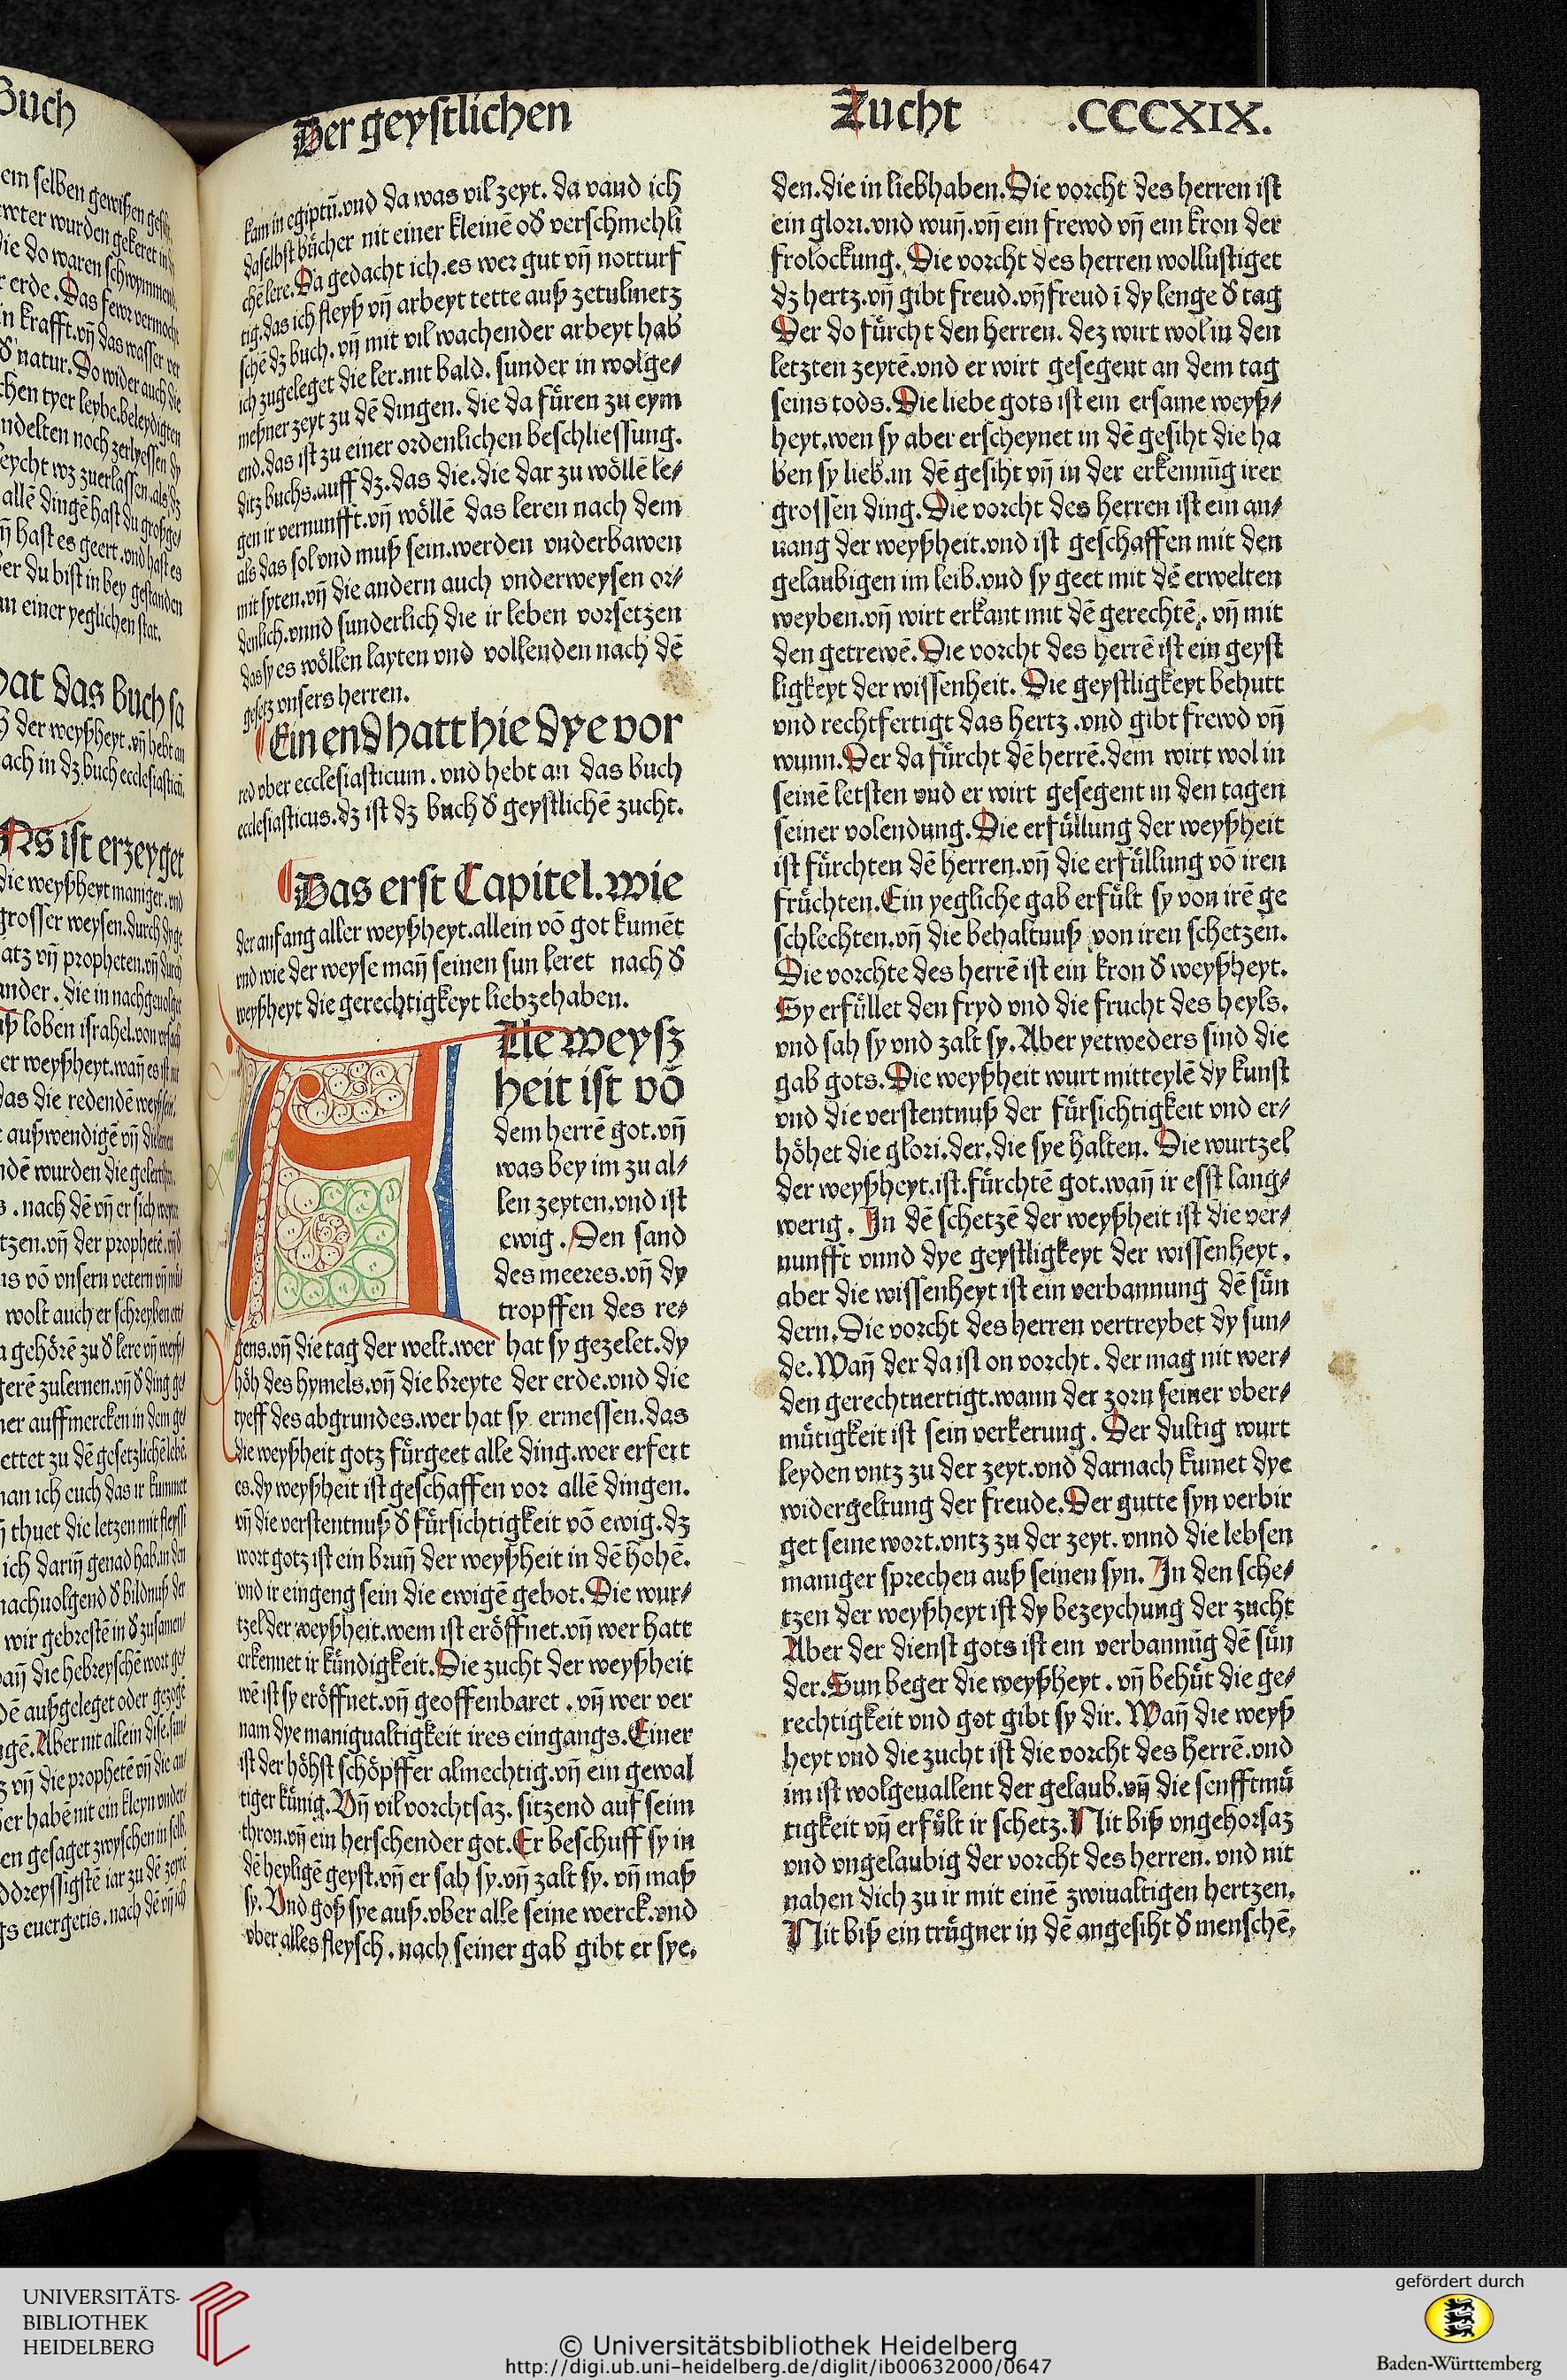 Buch
em selben gewißen
wter wurden gekeret in
die do waren schwymmend
erde. Das fewr vermocht
in krafft.vñ das wasser ver
natur. Do wider auch die
chen tyer leybe.beleydigten
ndelten noch zerlyessen dy
eycht wz zuerlassen.als dz
allē dingē hast du großge
vñ hast es geert.vnd hast es
er du bist in bey gestanden
an einer yeglichen stat.
hat das buch sa
der weyßheyt.vñ hebt an
ach in dz buch ecclesiasticū.
NS ist erzeyget
die weyßheyt maniger.vnd
grosser weysen.durch dz ge
atz vñ propheten.vñ durch
ander. die in nachgeuolget
loben israhel.von
er weyßheyt.wañ es ist
das die redendē
außwendigē vñ
dē wurden die
. nach dē vñ er sich
tzen.vñ der prophetē.vñ
as vō vnsern vetern vñ
wolt auch er schreyben
gehörē zu ð lere vñ weyß/
gerē zulernen.vñ ð ding ge/
ner auffmercken in dem ge/
ettet zu dē gesetzlichē lebē.
man ich euch das ir kummet
thuet die letzen mit fleyssi
ich dariñ genad hab.in den
nachuolgend ð bildnuß der
wir gebrestē in ð zusamen/
wañ die hebreyschē wort ge/
dē außgeleget oder gezogē
gē. Aber nit allein dise.sun/
vñ die prophetē vñ die an/
er habē nit ein kleyn vnder/
en gesaget zwyschen in selb.
ddreyssigstē iar zu dē zeytē
gs euergetis. nach dē vñ ich
Der geystlichen
kam in egiptū.vnd da was vil zeyt. da vand ich
daselbst bücher nit einer kleinē oð verschmehli
chē lere. Da gedacht ich.es wer gut vñ notturf
tig.das ich fleyß vñ arbeyt tette auß zetulmetz
schē dz buch. vñ mit vil wachender arbeyt hab
ich zugeleget die ler.nit bald. sunder in wolge/
meßner zeyt zu dē dingen. die da füren zu eym
end.das ist zu einer ordenlichen beschliessung.
ditz buchs.auff dz.das die.die dar zu wöllē le/
gen ir vernunfft.vñ wöllē das leren nach dem
als das sol vnd muß sein.werden vnderbawen
mit syten.vñ die andern auch vnderweysen or/
denlich.vnnd sunderlich die ir leben vorsetzen
das sy es wöllen layten vnd vollenden nach dē
gesetz vnsers herren.
Ein end hatt hie dye vor
red vber ecclesiasticum. vnd hebt an das buch
ecclesiasticus.dz ist dz buch ð geystlichē zucht.
Das erst Capitel.wie
der anfang aller weyßheyt.allein vō got kumēt
vnd wie der weyse mañ seinen sun leret nach ð
weyßheyt die gerechtigkeyt liebzehaben.
Alle weysz
heit ist vō
dem herrē got.vñ
was bey im zu al/
len zeyten.vnd ist
ewig. Den sand
des meeres.vñ dy
tropffen des re/
gens.vñ die tag der welt.wer hat sy gezelet.dy
höh des hymels.vñ die breyte der erde.vnd die
tyeff des abgrundes.wer hat sy ermessen.das
die weyßheit gotz fürgeet alle ding.wer erfert
es.dy weyßheit ist geschaffen vor allē dingen.
vñ die verstentnuß ð fürsichtigkeit vō ewig.dz
wort gotz ist ein bruñ der weyßheit in dē hohē.
vnd ir eingeng sein die ewigē gebot. Die wur/
tzel der weyßheit.wem ist eröffnet.vñ wer hatt
erkennet ir kündigkeit. Die zucht der weyßheit
wē ist sy eröffnet.vñ geoffenbaret. vñ wer ver
nam dye manigualtigkeit ires eingangs. Einer
ist der höhst schöpffer almechtig.vñ ein gewal
tiger künig. Vñ vil vorchtsaz. sitzend auf seim
thron.vñ ein herschender got. Er beschuff sy in
dē heyligē geyst.vñ er sah sy.vñ zalt sy. vñ maß
sy. Vnd goß sye auß.vber alle seine werck.vnd
vber alles fleysch. nach seiner gab gibt er sye.
Zucht .CCCXIX.
den.die in liebhaben. Die vorcht des herren ist
ein glori.vnd wuñ.vñ ein frewd vñ ein kron der
frolockung. Die vorcht des herren wollustiget
dz hertz.vñ gibt freud.vñ freud ī dy lenge ð tag
Der do fürcht den herren. dez wirt wol in den
letzten zeytē.vnd er wirt gesegent an dem tag
seins tods. Die liebe gots ist ein ersame weyß/
heyt.wen sy aber erscheynet in dē gesiht die ha
ben sy lieb.in dē gesiht vñ in der erkennūg irer
grossen ding. Die vorcht des herren ist ein an/
uang der weyßheit.vnd ist geschaffen mit den
gelaubigen im leib.vnd sy geet mit dē erwelten
weyben.vñ wirt erkant mit dē gerechtē. vñ mit
den getrewē. Die vorcht des herrē ist ein geyst
ligkeyt der wissenheit. Die geystligkeyt behutt
vnd rechtfertigt das hertz.vnd gibt frewd vñ
wunn. Der da fürcht dē herrē.dem wirt wol in
seinē letsten vnd er wirt gesegent in den tagen
seiner volendung. Die erfüllung der weyßheit
ist fürchten dē herren.vñ die erfüllung vō iren
früchten. Ein yegliche gab erfült sy von irē ge
schlechten.vñ die behaltnuß von iren schetzen.
Die vorchte des herrē ist ein kron ð weyßheyt.
Sy erfüllet den fryd vnd die frucht des heyls.
vnd sah sy vnd zalt sy. Aber yetweders sind die
gab gots. Die weyßheit wurt mitteylē dy kunst
vnd die verstentnuß der fürsichtigkeit vnd er/
höhet die glori.der.die sye halten. Die wurtzel
der weyßheyt.ist.fürchtē got.wañ ir esst lang/
werig. In dē schetzē der weyßheit ist die ver/
nunfft vnnd dye geystligkeyt der wissenheyt.
aber die wissenheyt ist ein verbannung dē sün
dern. Die vorcht des herren vertreybet dy sun/
de. Wañ der da ist on vorcht. der mag nit wer/
den gerechtuertigt.wann der zorn seiner vber/
mütigkeit ist sein verkerung. Der dultig wurt
leyden vntz zu der zeyt.vnd darnach kumet dye
widergeltung der freude. Der gutte syn verbir
get seine wort.vntz zu der zeyt. vnnd die lebsen
maniger sprechen auß seinen syn. In den sche/
tzen der weyßheyt ist dy bezeychung der zucht
Aber der dienst gots ist ein verbannūg dē sün
der. Sun beger die weyßheyt. vñ behüt die ge/
rechtigkeit vnd got gibt sy dir. Wañ die weyß
heyt vnd die zucht ist die vorcht des herrē.vnd
im ist wolgeuallent der gelaub.vñ die senfftmü
tigkeit vñ erfült ir schetz. Nit biß vngehorsaz
vnd vngelaubig der vorcht des herren. vnd nit
nahen dich zu ir mit einē zwiualtigen hertzen.
Nit biß ein trügner in dē angesiht ð menschē.
UNIVERSITÄTS-
BIBLIOTHEK
HEIDELBERG
© Universitätsbibliothek Heidelberg
http://digi.ub.uni-heidelberg.de/diglit/ib00632000/0647
gefördert durch
Baden-Württemberg